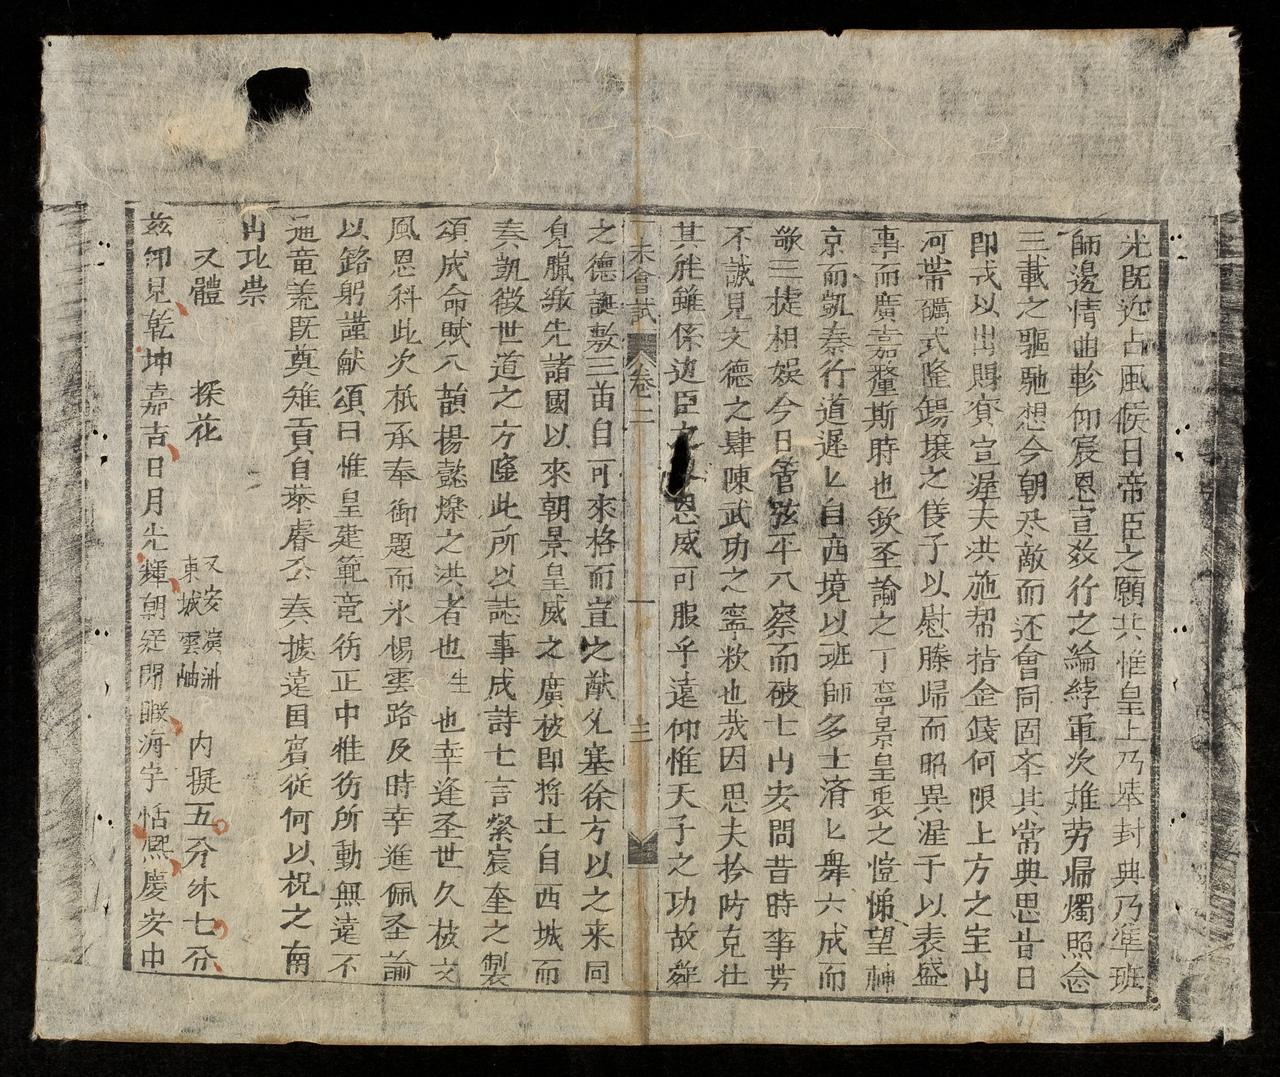 光既迩占風候日帝臣之願共惟皇上乃舉封典乃準班
師邊情曲軫仰宸恩宣效行之綸綍軍次雄劳歸燭照念
三載之驅馳想今朝尽敵而还會同固夲其常典思昔日
即戎以出則賚宣渥夫洪施帮指企錢何限上方之宝山
河帶礪式隆錫壤之隻子以慰勝歸而昭異渥于以表盛
事而廣嘉釐斯時也欽圣諭之丁寧景皇衷之愷悌望神
京而凱奏行道遲匕自西境以班師多士済匕舞六成而
歌三捷相娱今日管弦平八察而破七山安問昔時事劳
不誠見文德之肆陳武功之寧敉也哉因思夫衿昉克壮
其胜雖係边臣之恩威可服乎遠仰惟天子之功故舜
未會試 卷二 一 三
之德誕敷三苗自可來格而宣之猷允塞徐方以之来同
見臘繳先諸國以來朝景皇威之廣被即将士自西城而
奏凱徵世道之方隆此所以誌事成詩七言繄宸奎之製
頌成命賦八韻揚懿爍之洪者也生 也幸逢圣世久被文
風恩科此次祇承奉御題而氷惕雲路及時幸進佩圣諭
以銘躬謹献頌曰惟皇建範竜彷正中惟彷所動無遠不
通竜羗既奠雉貢自蔡睿公奏據遠囯賓從何以祝之南
山北崇
又體 探花 又安演洲東城雲岫 内擬五分休七分
兹仰見乾坤嘉吉日月光輝朝廷閒暇海宇恬熈慶安中